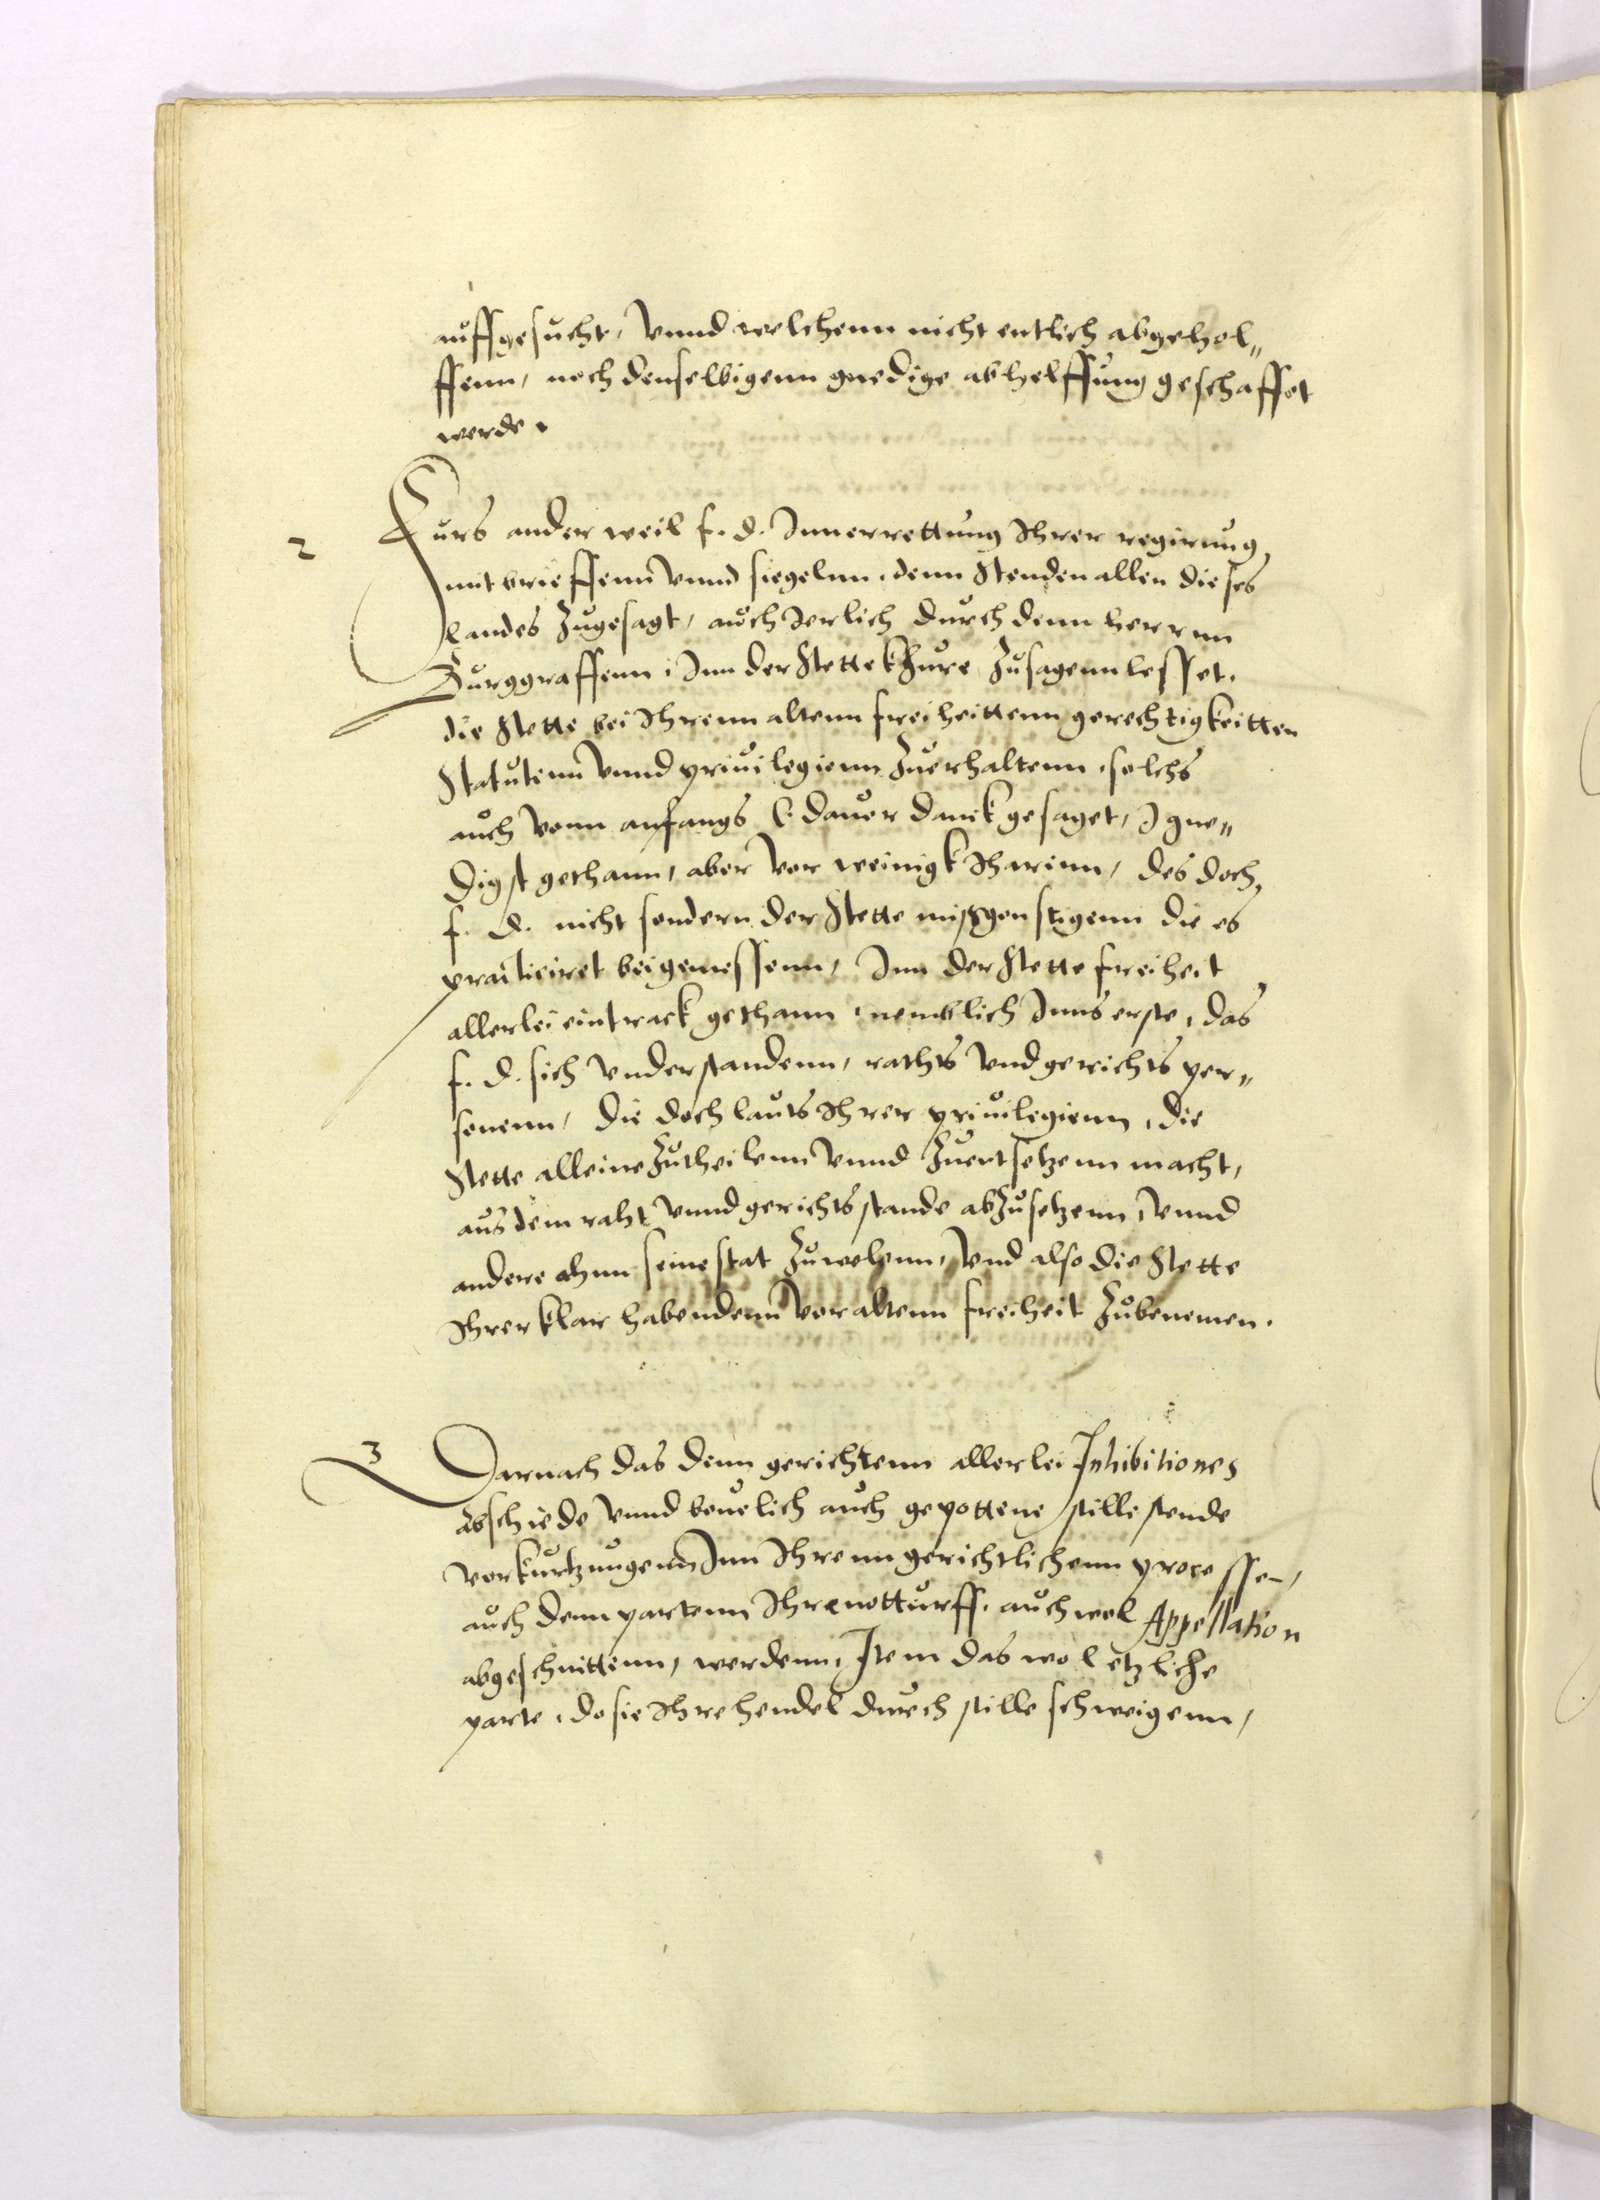 auffgesucht, Vnnd welchenn nicht entlich abgehol„
ffenn, noch denselbigenn gnedige abhelffung geschaffet
werde.
2 Furs ander weil f. d. Inn errettung Ihrer regirung,
mit brieffenn Vnnd siegelnn, denn Stenden allen dieses
landes Zugesagt, auch Jerlich durch denn herrnn
Burggraffenn, Inn der Stette Zusagenn lesset.
die Stette bei Ihrenn altenn freiheittenn gerechtigkeitten
Statutenn Vnnd priuilegienn Zuerhaltenn, solchs
auch vonn anfangs dauor danck gesaget, gne„
digst gethann, aber Vor weinigk Iharinn, des doch,
f. d. nicht sondern der Stette missgonstigenn die es
practiciret beigemessenn, Inn der Stette freiheit
allerlei eintrack gethann, nemblich Inns erste, das
f. d. sich Vnderstandenn, raths Vnd gerichts per„
sonenn, die doch lauts Ihrer priuilegienn, die
Stette alleine Zutheilenn Vnnd Zuentsetzenn macht,
aus dem raht Vnnd gerichtsstande abZusetzenn, Vnnd
andere ahnn seine stat Zuwelenn, Vnd also die Stette
Ihrer klar habendenn Vor altenn freiheit Zubenemen.
3 Darnach das denn gerichtenn allerlei Inhibitiones
abschiede Vnnd beuelich auch gepottene stillestende
Vorkurtzungenn Inn Ihrenn gerichtlichenn processe,
auch denn partenn Ihre notturff. auch wol Appellation
abgeschnittenn, werdenn, Item das wol etzliche
parte, do sie Ihre hendel durch stille schweigenn,